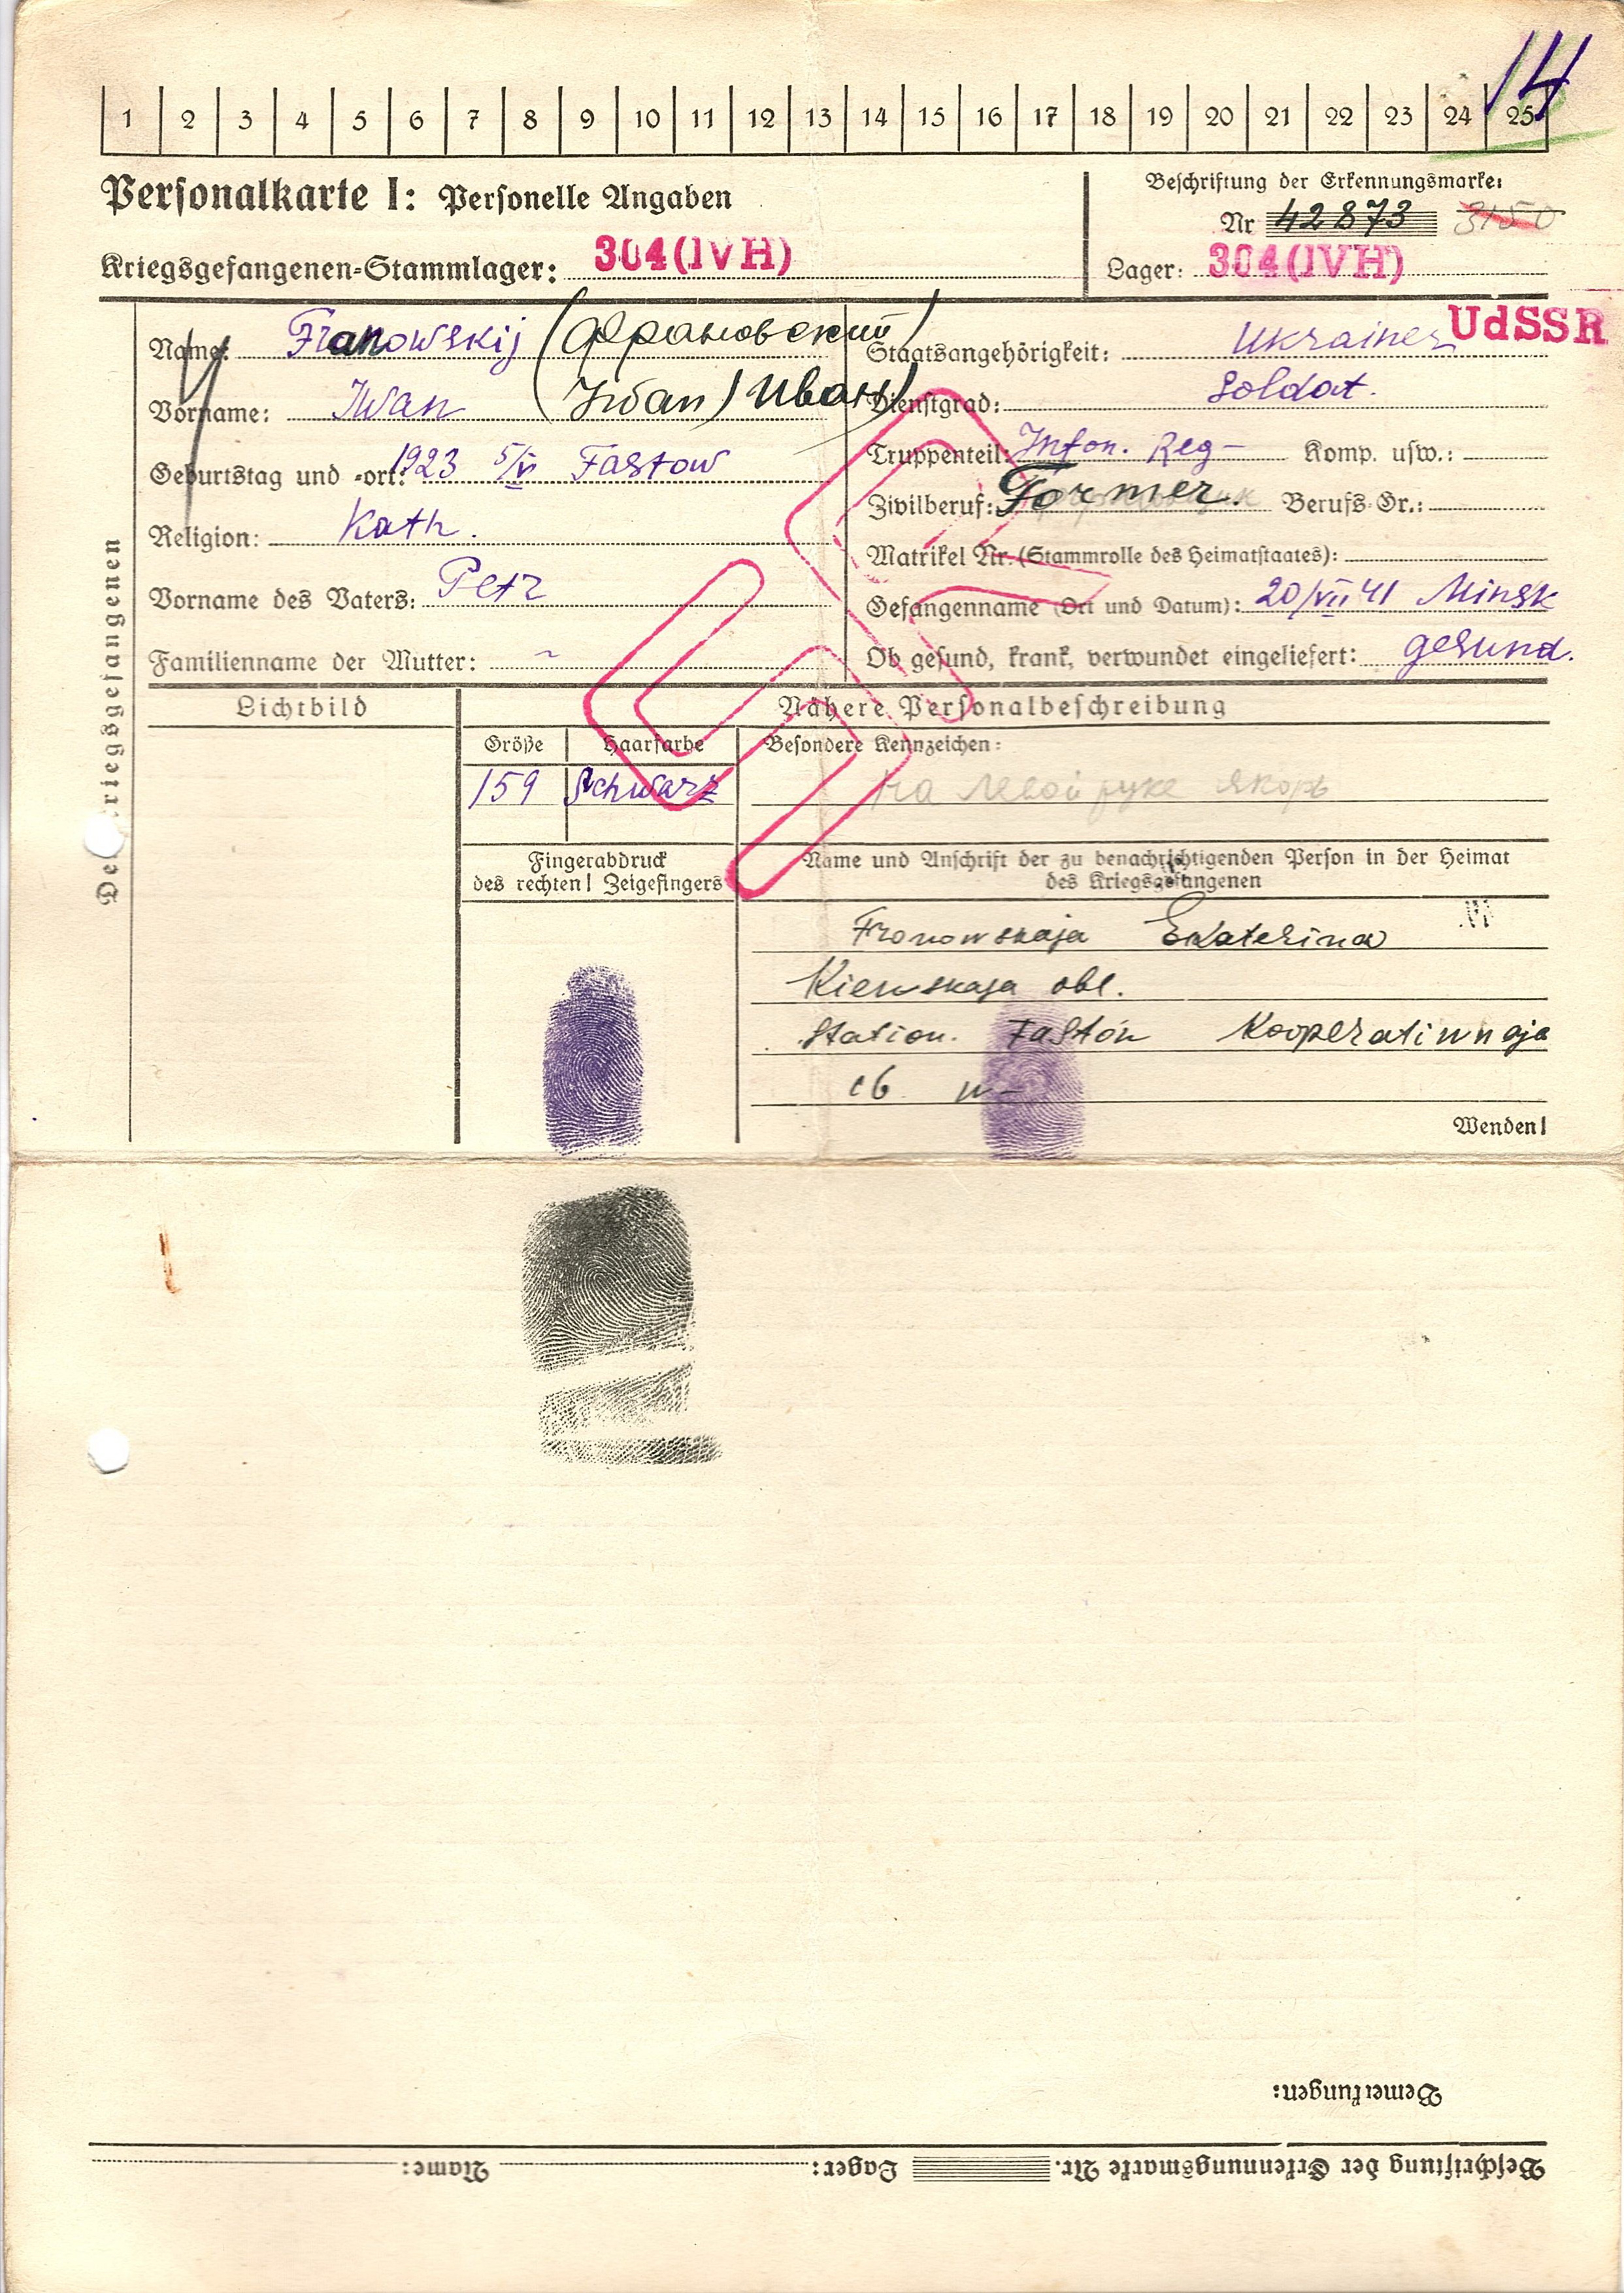 14
1 2 3 4 5 6 7 8 9 10 11 12 13 14 15 16 17 18 19 20 21 22 23 24 25
Personalkarte I: Personelle Angaben
Kriegsgefangenen-Stammlager: 304 (IV H)
Beschriftung der Erkennungsmarke:
Nr 42873 3150
Lager: 304 (IV H)
Des Kriegsgefangenen
Name: Franowskij (Франовский
Vorname: Iwan (Iwan) Иван)
Geburtstag und -ort: 1923 5/VI Fastow
Religion: Kath.
Vorname des Vaters: Petr
Familienname der Mutter: ~
Staatsangehörigkeit: Ukrainer UdSSR
Dienstgrad: Soldat.
Truppenteil: Infan. Reg– Komp. usw.:
Zivilberuf: Former. Berufs-Gr.:
Matrikel Nr. (Stammrolle des Heimatstaates):
Gefangenname (Ort und Datum): 20/VII 41 Minsk
Ob gesund, krank, verwundet eingeliefert: gesund.
Lichtbild
Nähere Personalbeschreibung
Größe Haarfarbe Besondere Kennzeichen:
159 Schwarz на левой руке якорь
Fingerabdruck
des rechten! Zeigefingers
Name und Anschrift der zu benachrichtigenden Person in der Heimat
des Kriegsgefangenen
Fronowskaja Ekaterina
Kiewskaja obl.
Station. Fastow Kooperatiwnaja
16
Wenden!
Bemerkungen:
Beschriftung der Erkennungsmarke Nr. Lager: Name: